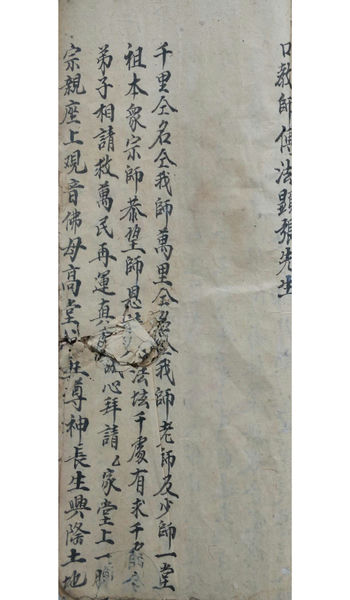 口教師傅法顯張先生
千里仝名仝我師萬里仝名仝我師老師及少師一堂
祖本衆宗師恭望師恩法坛千處有求千處
弟子相請救萬民再運真心拜請家堂上一
宗親座上观音佛母高堂尊神長生興隆土地